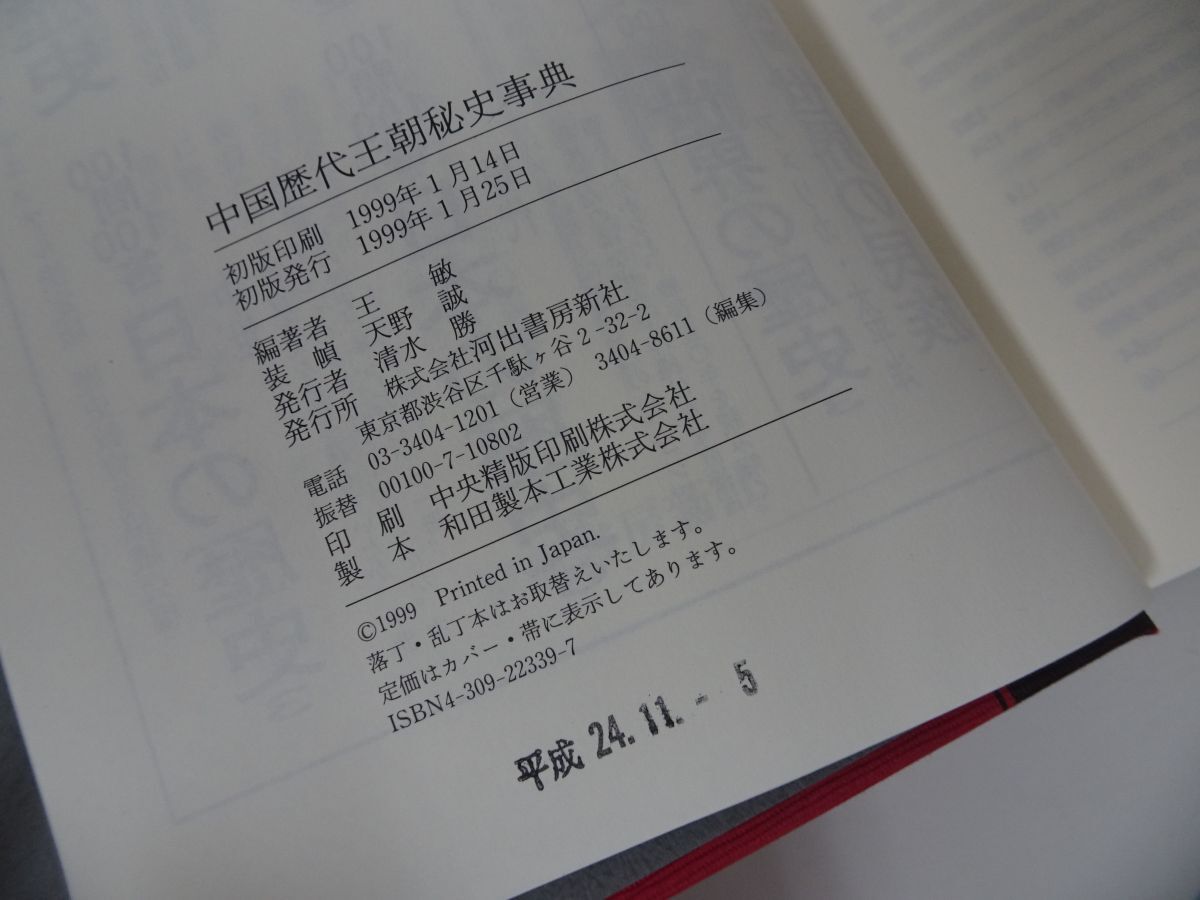 中国歴代王朝秘史事典
初版印刷 1999年1月14日
初版発行 1999年1月25日
編著者 王 敏
装 幀 天野 誠
発行者 清水 勝
発行所 株式会社河出書房新社
東京都渋谷区千駄ヶ谷2-32-2
電話 03-3404-1201（営業） 3404-8611（編集）
振替 00100-7-10802
印 刷 中央精版印刷株式会社
製 本 和田製本工業株式会社
©1999 Printed in Japan.
落丁・乱丁本はお取替えいたします。
定価はカバー・帯に表示してあります。
ISBN4-309-22339-7
平成 24.11.- 5